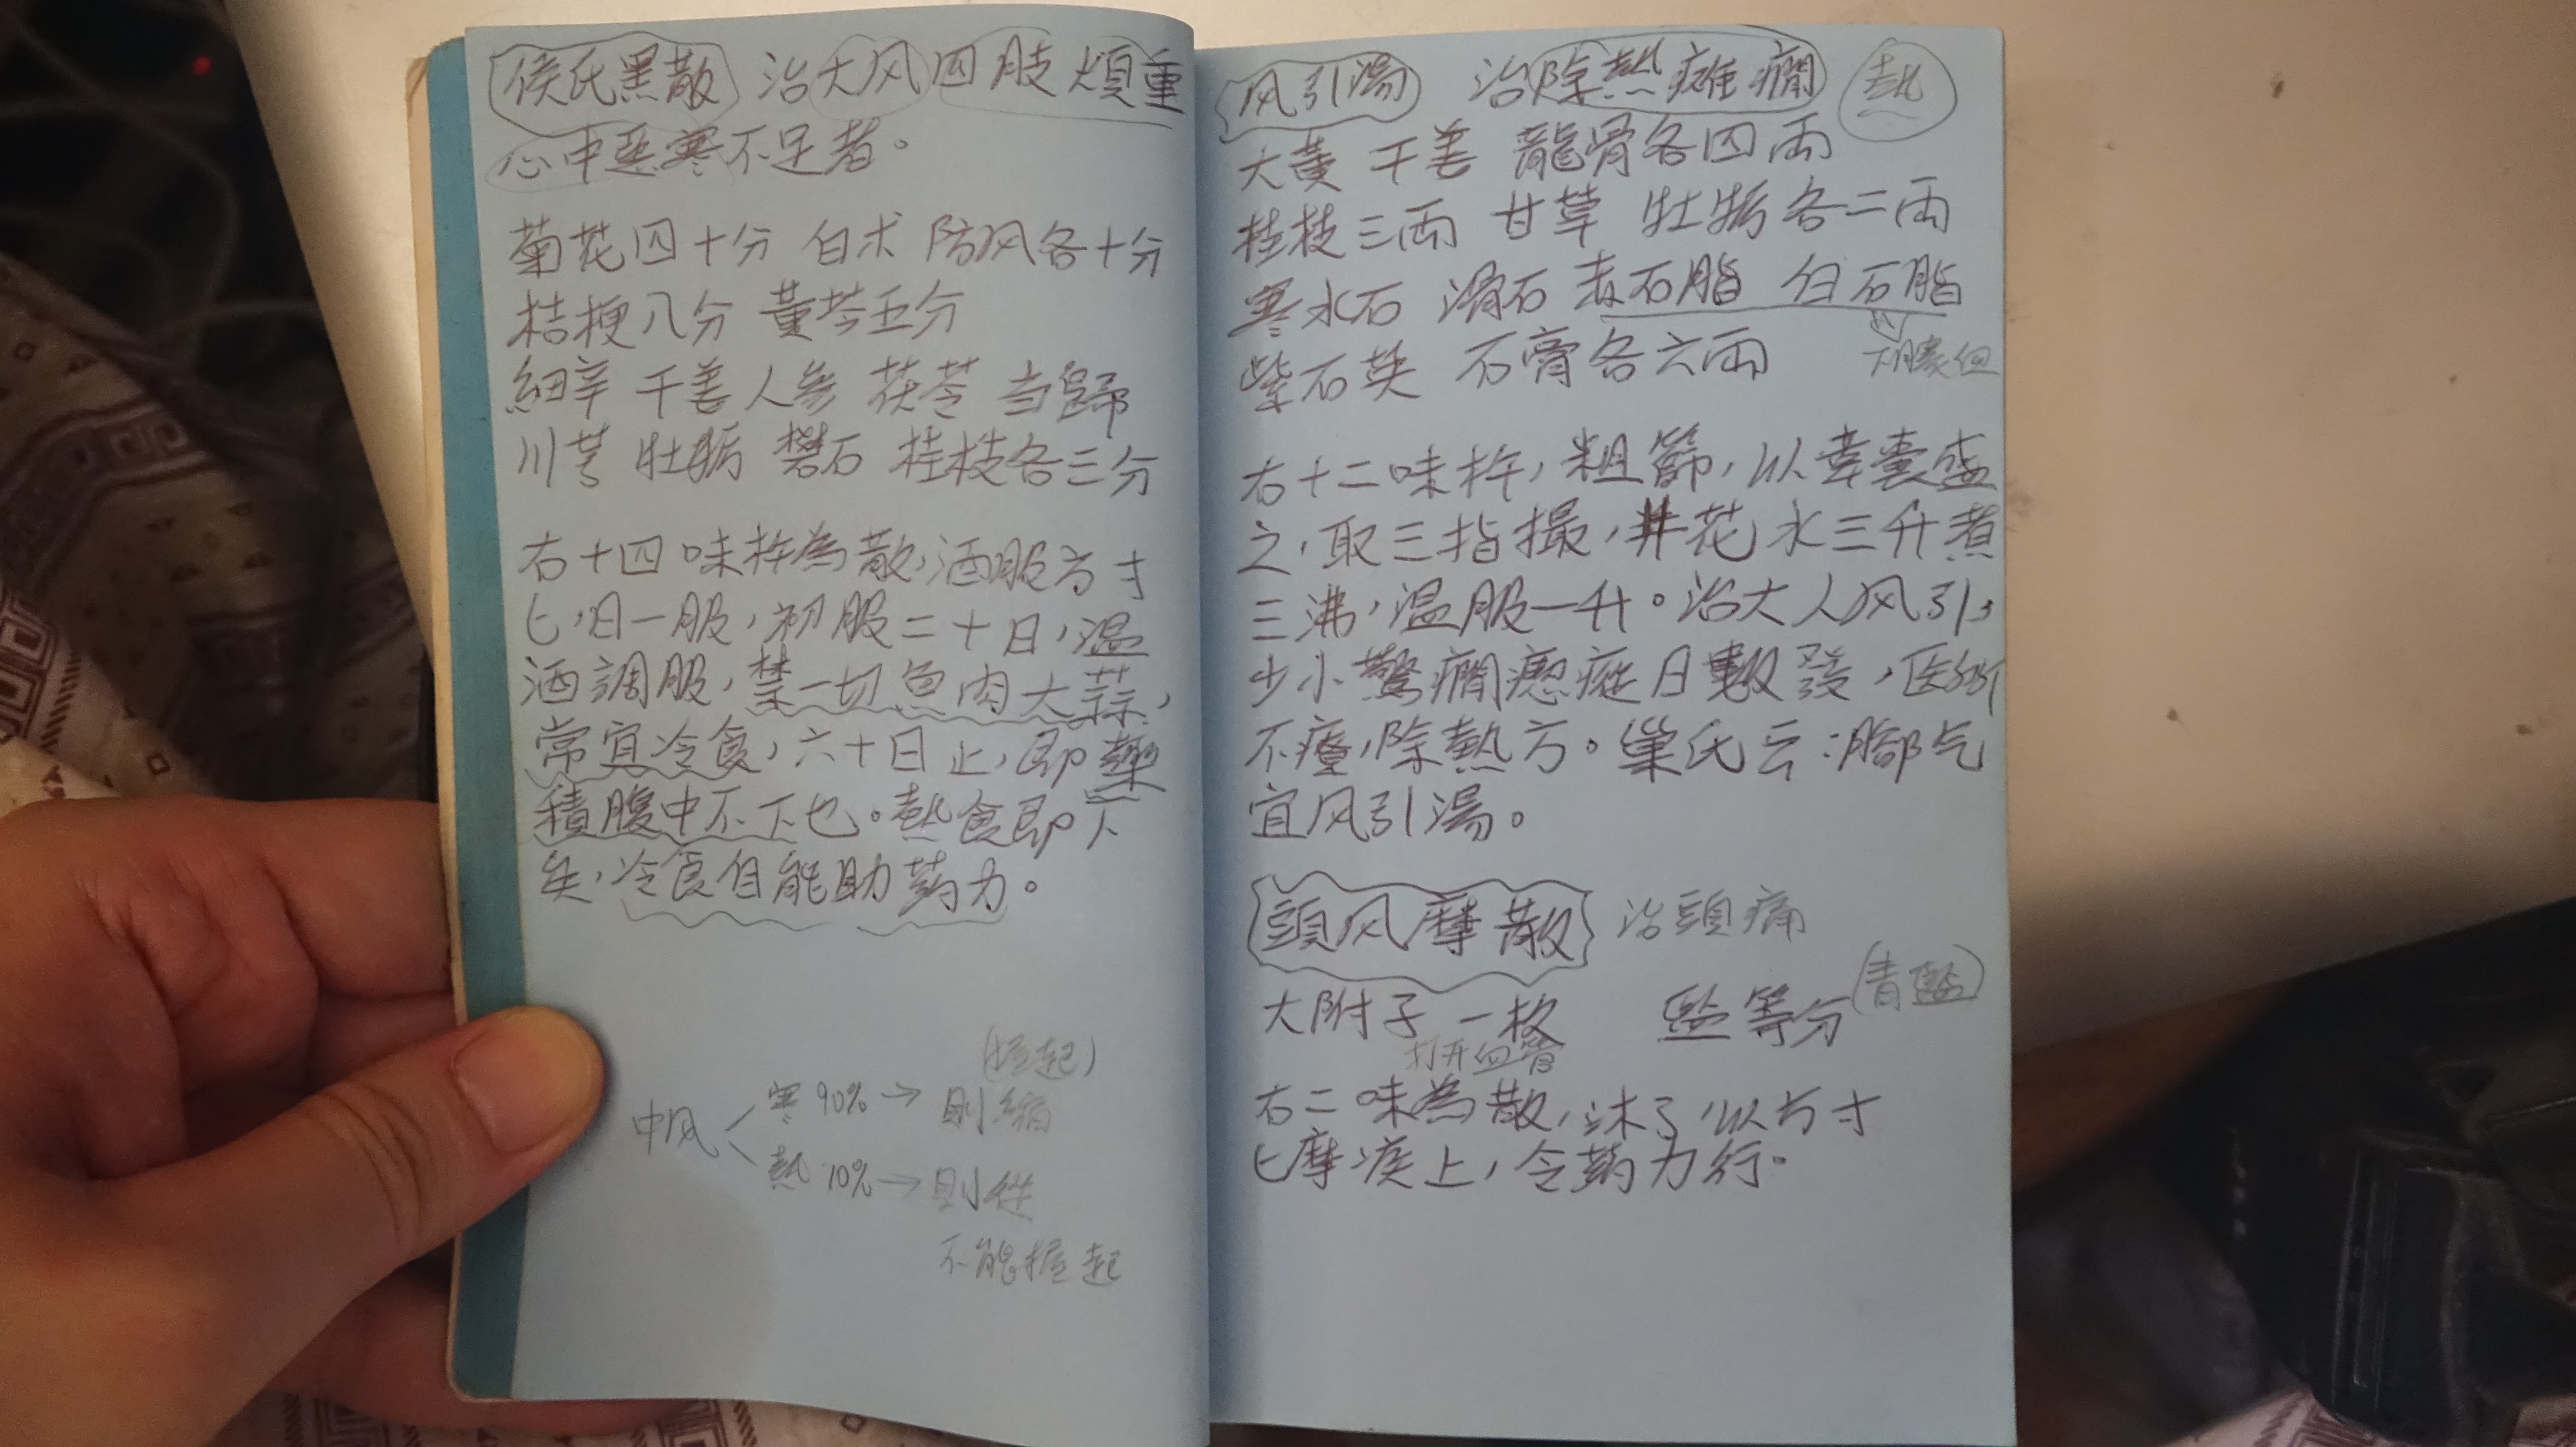 侯氏黑散 治大风四肢煩重
心中惡寒不足者。
菊花四十分 白术 防风各十分
桔梗八分 黃芩五分
細辛 干姜 人參 茯苓 当歸
川芎 牡蛎 礬石 桂枝各三分
右十四味杵為散，酒服方寸
匕，日一服，初服二十日，温
酒調服，禁一切魚肉大蒜，
常宜冷食，六十日止，即藥
積腹中不下也。熱食即下
矣，冷食自能助药力。
中风
寒 90% → 則縮
熱 10% → 則
不能握起
风引湯 治除熱癱癇 熱
大黃 干姜 龍骨各四兩
桂枝三兩 甘草 牡蛎各二兩
寒水石 滑石 赤石脂 白石脂
紫石英 石膏各六兩
右十二味杵，粗篩，以韋囊盛
之，取三指撮，井花水三升煮
三沸，温服一升。治大人风引，
少小驚癇瘛瘲日數發，医所
不療，除熱方。巢氏云：脚气
宜风引湯。
頭风摩散 治頭痛
大附子一枚 盐等分 (青鹽)
打开血管
右二味為散，沐了，以方寸
匕摩疾上，令药力行。